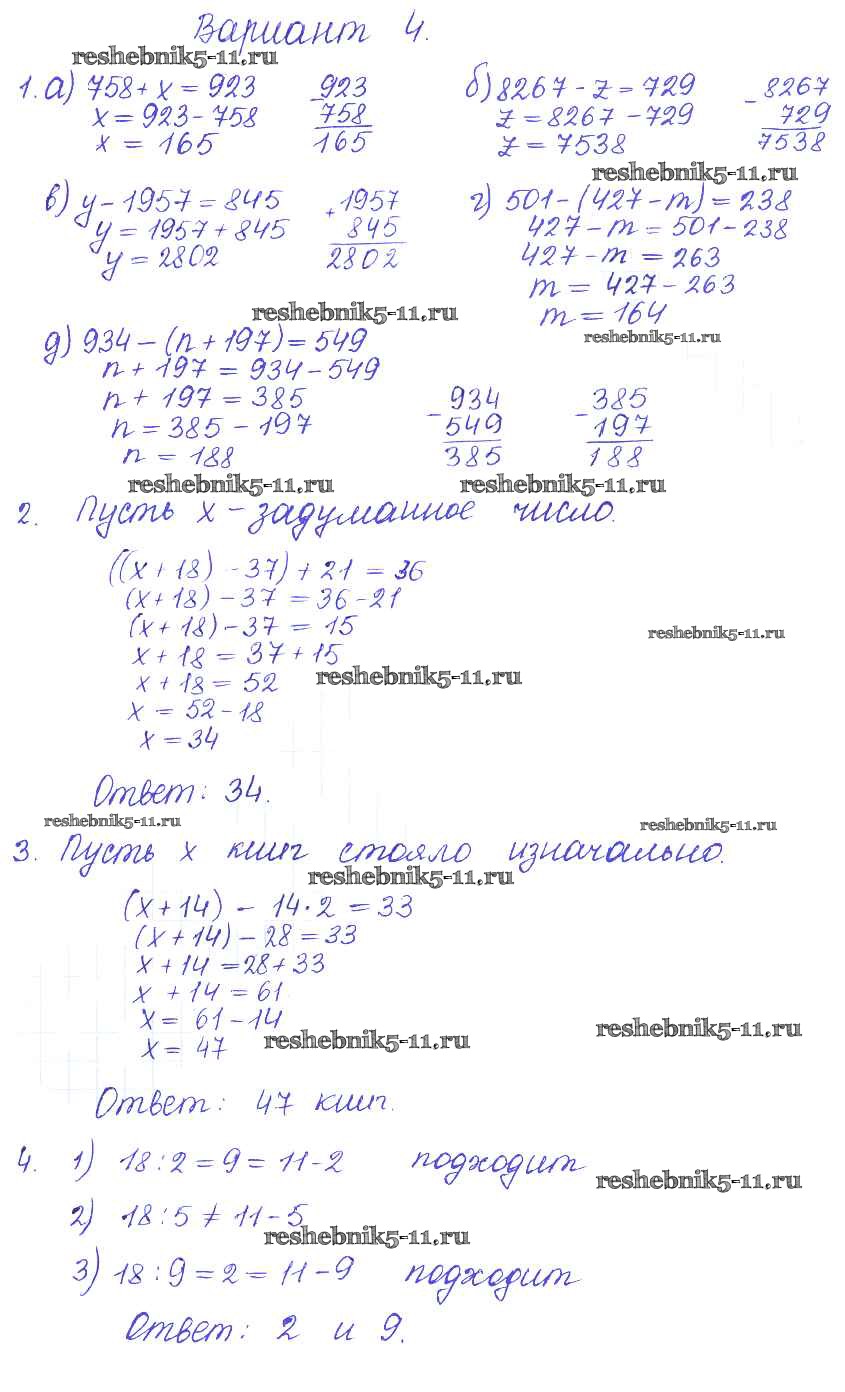 Вариант 4.
reshebnik5-11.ru
1. а) 758 + x = 923
x = 923 - 758
x = 165
- 923
758
165
б) 8267 - z = 729
z = 8267 - 729
z = 7538
- 8267
729
7538
reshebnik5-11.ru
в) y - 1957 = 845
y = 1957 + 845
y = 2802
+ 1957
845
2802
г) 501 - (427 - m) = 238
427 - m = 501 - 238
427 - m = 263
m = 427 - 263
m = 164
reshebnik5-11.ru
reshebnik5-11.ru
д) 934 - (n + 197) = 549
n + 197 = 934 - 549
n + 197 = 385
n = 385 - 197
n = 188
- 934
549
385
- 385
197
188
reshebnik5-11.ru reshebnik5-11.ru
2. Пусть x - задуманное число.
((x + 18) - 37) + 21 = 36
(x + 18) - 37 = 36 - 21
(x + 18) - 37 = 15
reshebnik5-11.ru
x + 18 = 37 + 15
reshebnik5-11.ru
x + 18 = 52
x = 52 - 18
x = 34
Ответ: 34.
reshebnik5-11.ru reshebnik5-11.ru
3. Пусть x книг стояло изначально.
reshebnik5-11.ru
(x + 14) - 14 · 2 = 33
(x + 14) - 28 = 33
x + 14 = 28 + 33
x + 14 = 61
x = 61 - 14
x = 47
reshebnik5-11.ru reshebnik5-11.ru
Ответ: 47 книг.
4. 1) 18 : 2 = 9 = 11 - 2 подходит
reshebnik5-11.ru
2) 18 : 5 ≠ 11 - 5
reshebnik5-11.ru
3) 18 : 9 = 2 = 11 - 9 подходит
Ответ: 2 и 9.